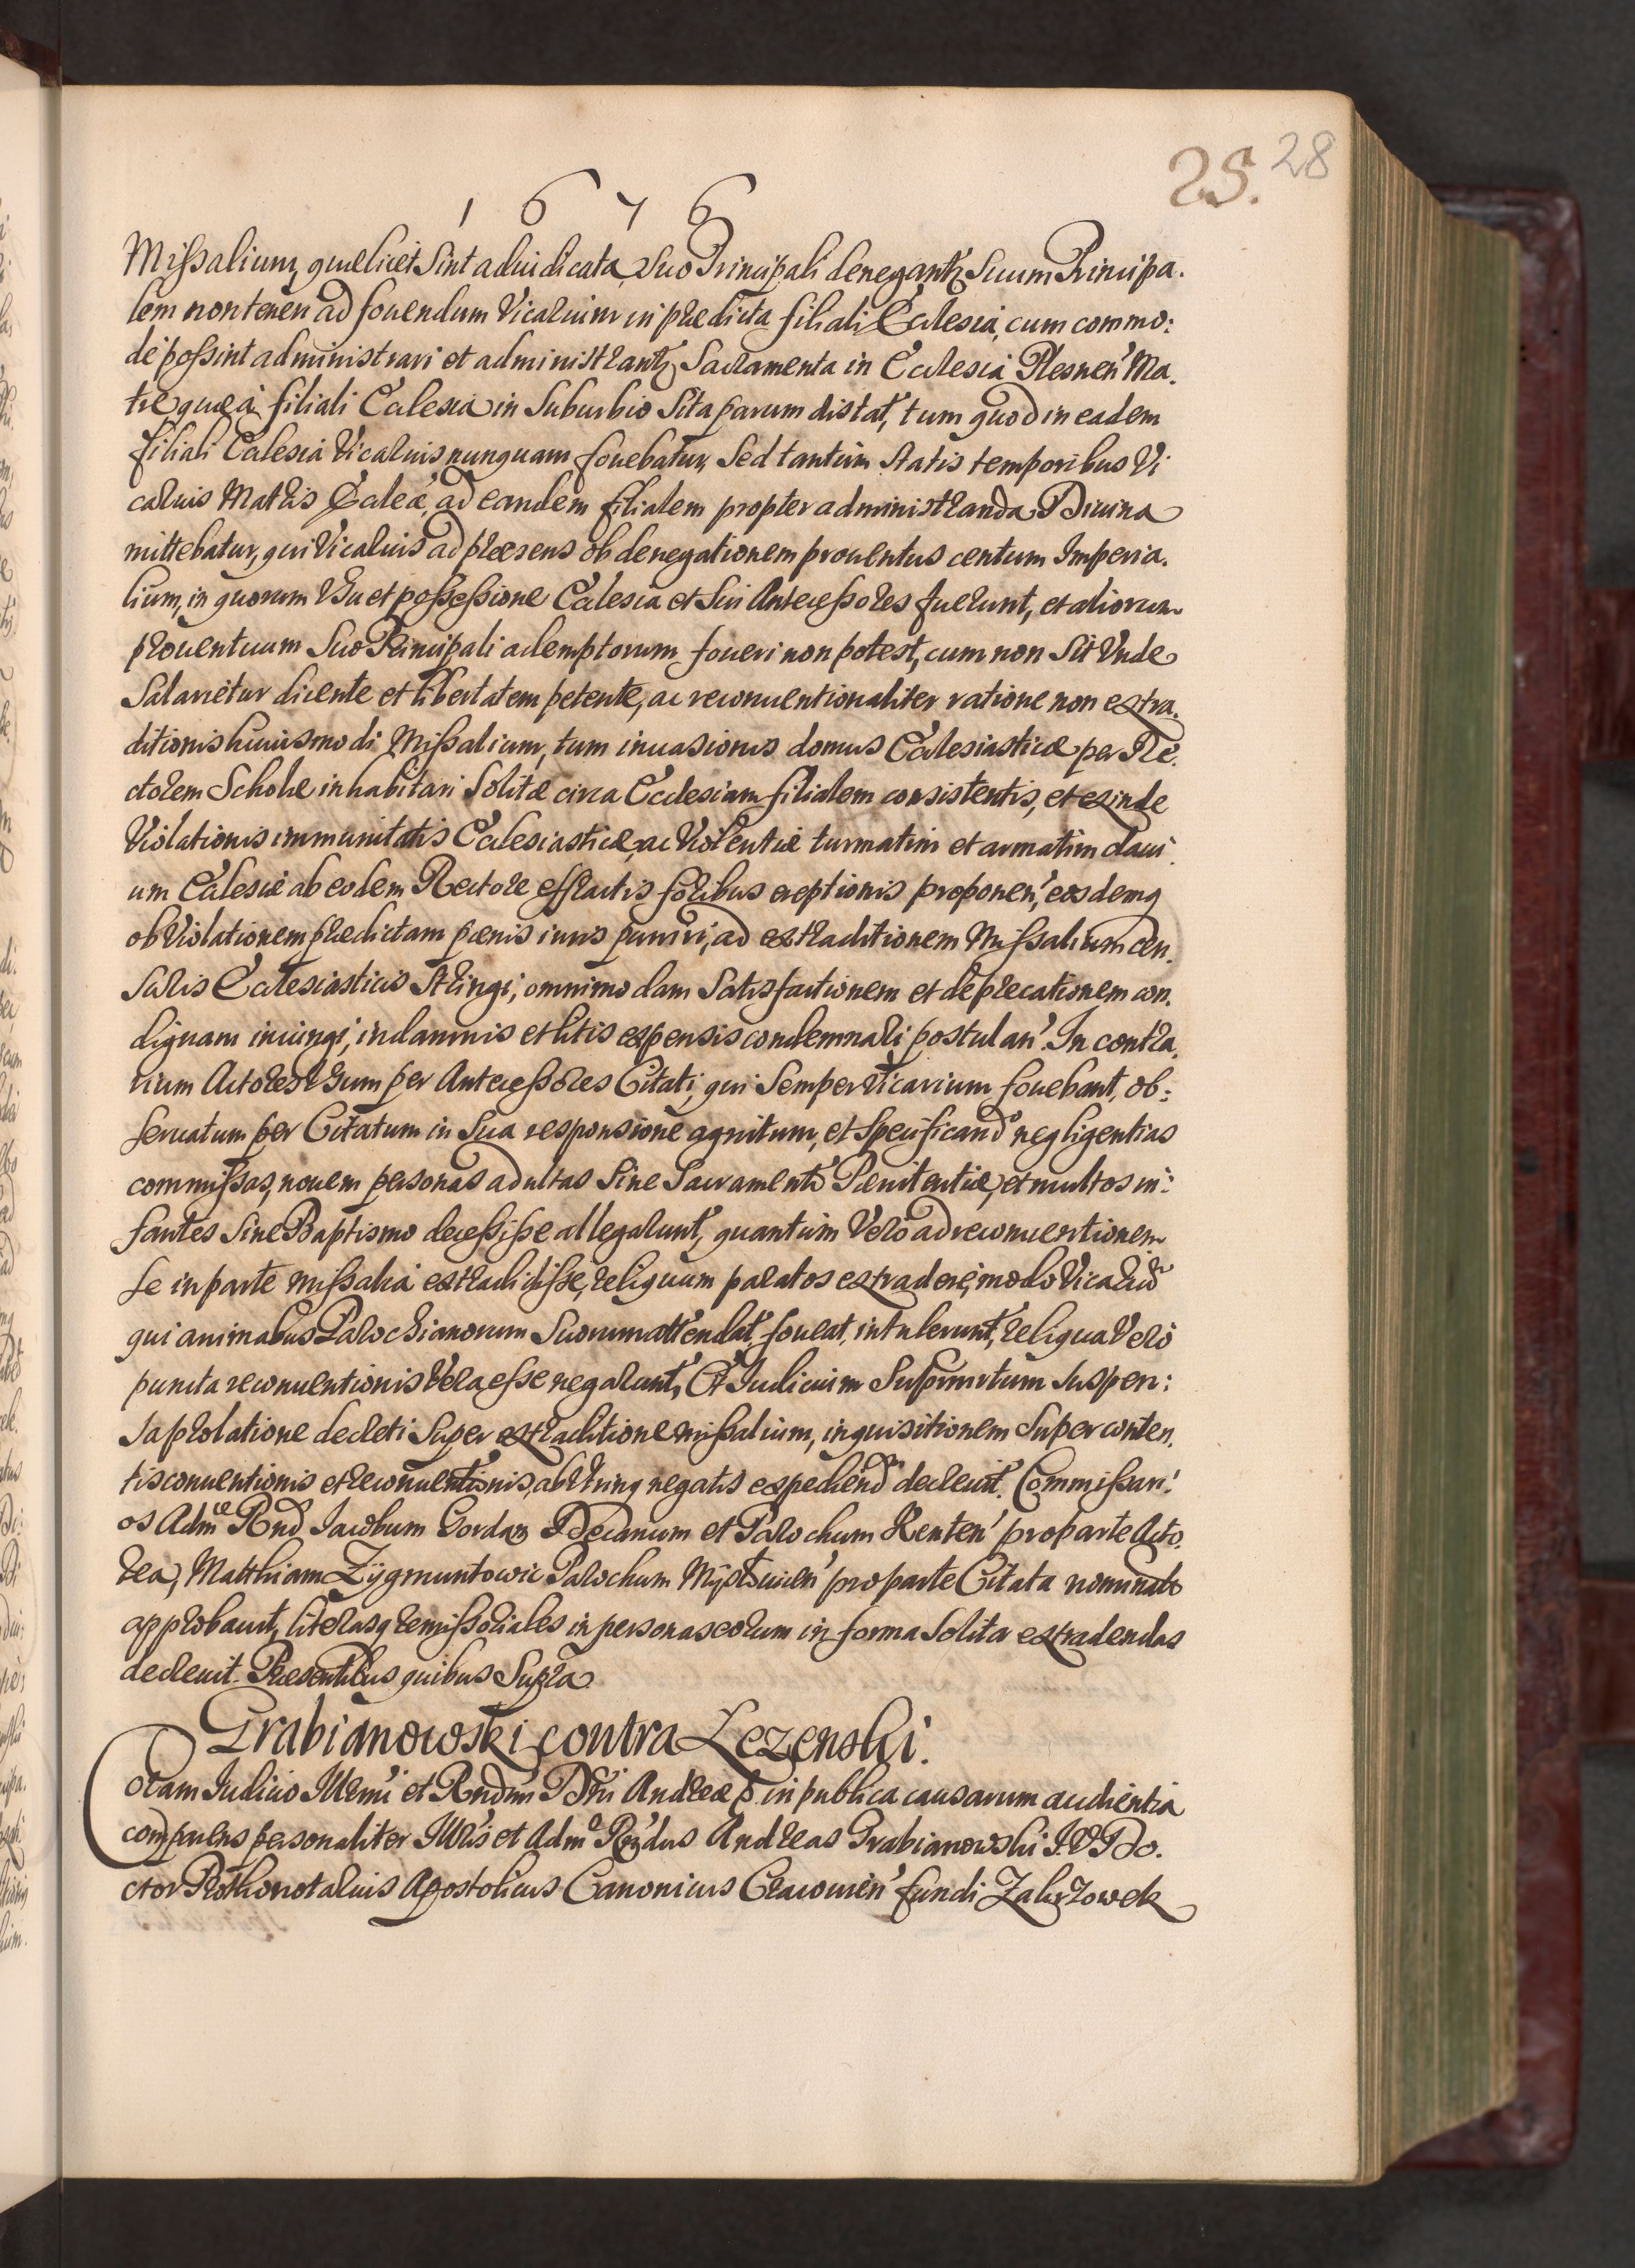 25. 28
1 6 7 6
Missalium, quæ licet sint adiudicata, Suo Principali denegantur, Suum Principa-
lem non teneri ad fouendum Vicarium in prædicta filiali Ecclesia, cum commo:
dè possint administrari et administrantur Sacramenta in Ecclesia Plesnen' Ma-
tre, quæ à filiali Ecclesia in Suburbio Sita parum distat, tum quod in eadem
filiali Ecclesia Vicarius nunquam fouebatur, Sed tantùm Statis temporibus Vi
carius Matris Ecclæ, ad eandem filialem propter administranda Diuina
mittebatur, qui Vicarius ad præsens ob denegationem prouentus centum Imperia-
lium, in quorum Vsu et possessione Ecclesia et Sui Antecessores fuerunt, et aliorum
prouentuum Suo Principali ademptorum foueri non potest, cum non Sit Vnde
Salarietur dicente et libertatem petente, ac reconuentionaliter ratione non extra-
ditionis huiusmodi Missalium, tum inuasionis domus Ecclesiasticæ per Re-
ctorem Scholæ inhabitari Solitæ circa Ecclesiam filialem consistentis, et exinde
Violationis immunitatis Ecclesiasticæ, ac Violentiæ turmatim et armatim claui
um Ecclesiæ ab eodem Rectore effractis foribus ereptionis proponen', eosdemq
ob Violationem prædictam pœnis iuris puniri, ad extraditionem Missalium cen-
suris Ecclesiasticis Stringi, omnimodam Satisfactionem et deprecationem con-
dignam iniungi, in damnis et litis expensis condemnari postulan'. In contra-
rium Actores Vsum per Antecessores Citati, qui Semper Vicarium fouebant, ob:
seruatum per Citatum in Sua responsione agnitum, et Specificand negligentias
commissas, nouem personas adultas Sine Sacramento Pœnitentiæ, et multos in:
fantes Sine Baptismo decessisse allegarunt, quantùm Verò ad reconuentionem
Se in parte missalia extradidisse, reliquum paratos extradere, modo Vicariũ
qui animabus Parochianorum Suorum attendat, foueat, intulerunt, reliqua Verò
puncta reconuentionis Vera esse negarunt, Et Iudicium Supranrtum Suspen:
sa prolatione decreti Super extraditione missalium, inquisitionem Super conten-
tis conuentionis et reconuentionis, ab Vtrinq negatis expediend decreuit. Commissari'
os Adm Rnd Iacobum Gordan Decanum et Parochum Kenten' pro parte Acto-
rea, Matthiam Zÿgmuntowic Parochum Myslouicen' pro parte Citata nominato
approbauit, literasq remissoriales in personas eorum in forma Solita extradendas
decreuit. Præsentibus quibus Supra.
Grabianowski contra Lezenski.
Coram Iudicio Illrmi et Rndmi Dni Andreæ in publica causarum audientia
comparens personaliter Illris et Adm Rndus Andreas Grabianowski I. V. Do-
ctor Prothonotarius Apostolicus Canonicus Cracouien' fundi Zakrzowek